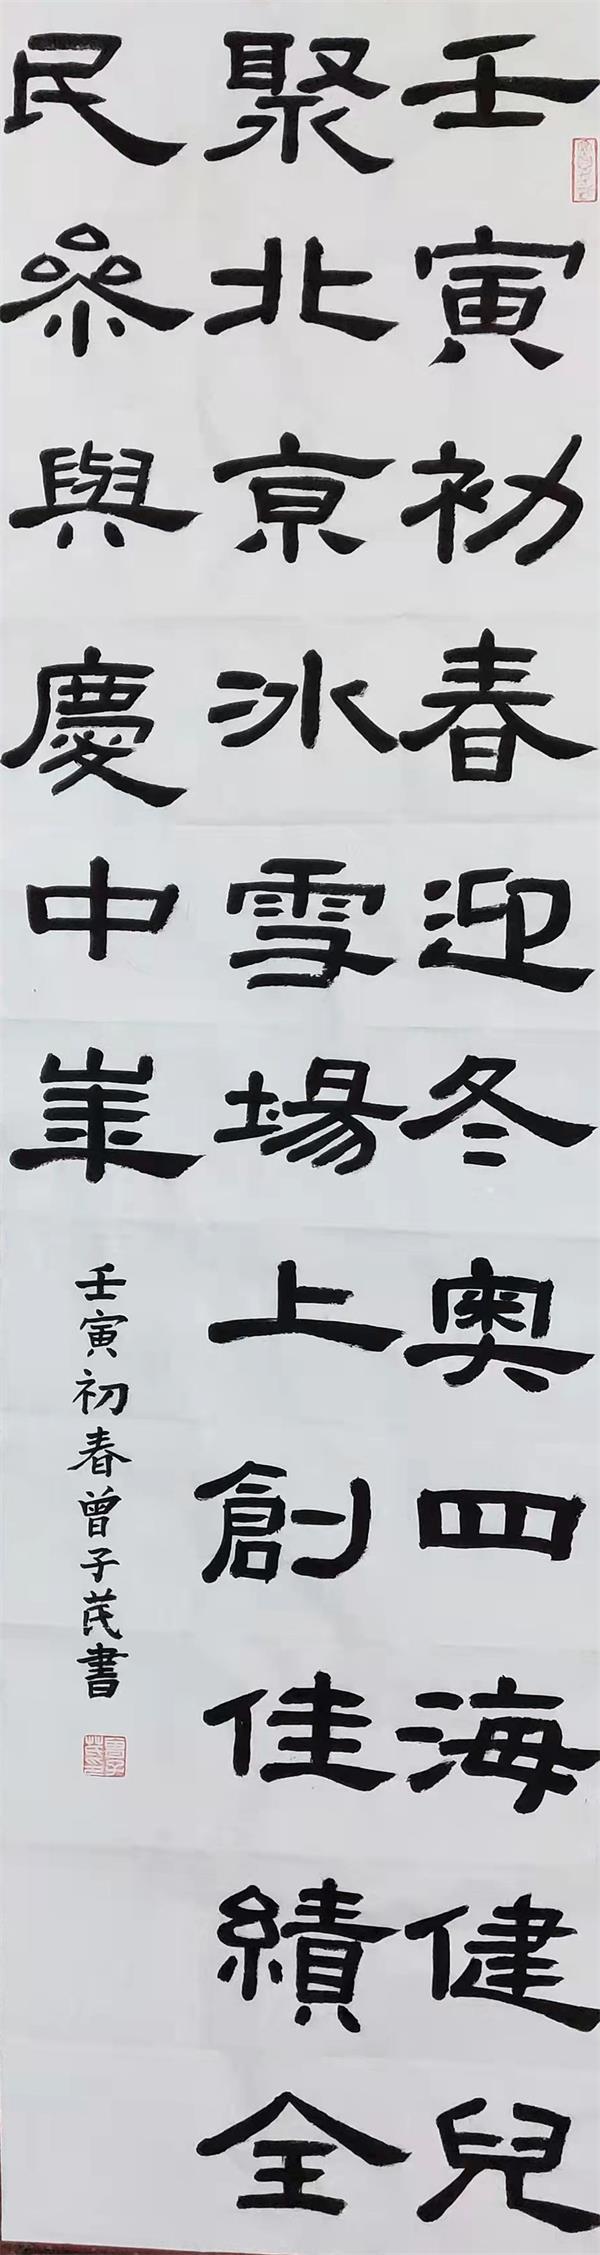 壬寅初春迎冬奧四海健兒
聚北京冰雪場上創佳績全
民參與慶中華
壬寅初春曾子芪書